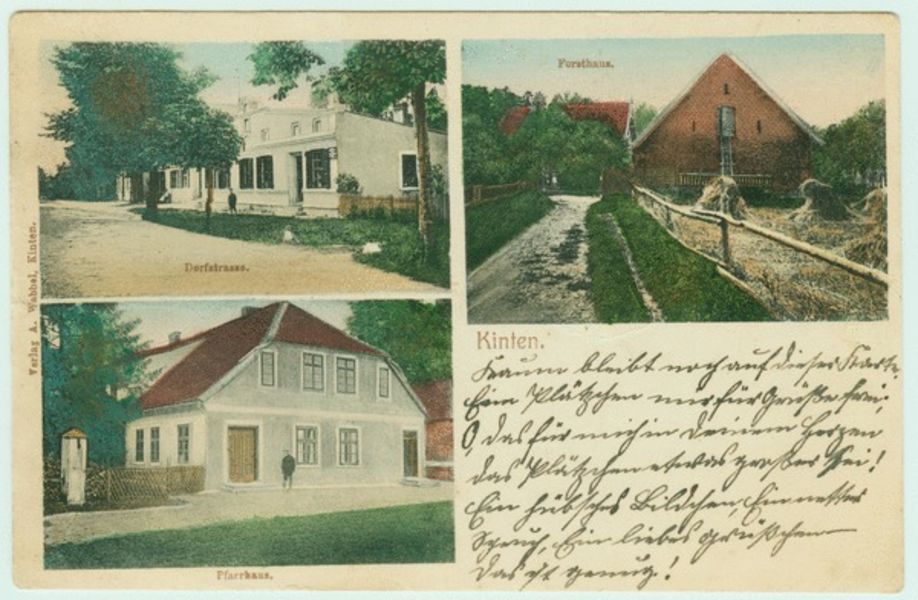 Dorfstrasse.
Forsthaus.
Verlag A. Wabbel, Kinten.
Pfarrhaus.
Kinten.
Kaum bleibt noch auf dieser Karte
Ein Plätzchen nur für Grüße frei,
O, das für mich in Deinem Herzen
das Plätzchen etwas größer sei!
Ein hübsches Bildchen, Ein netter
Spruch, Ein liebes Grüßchen
das ist genug!